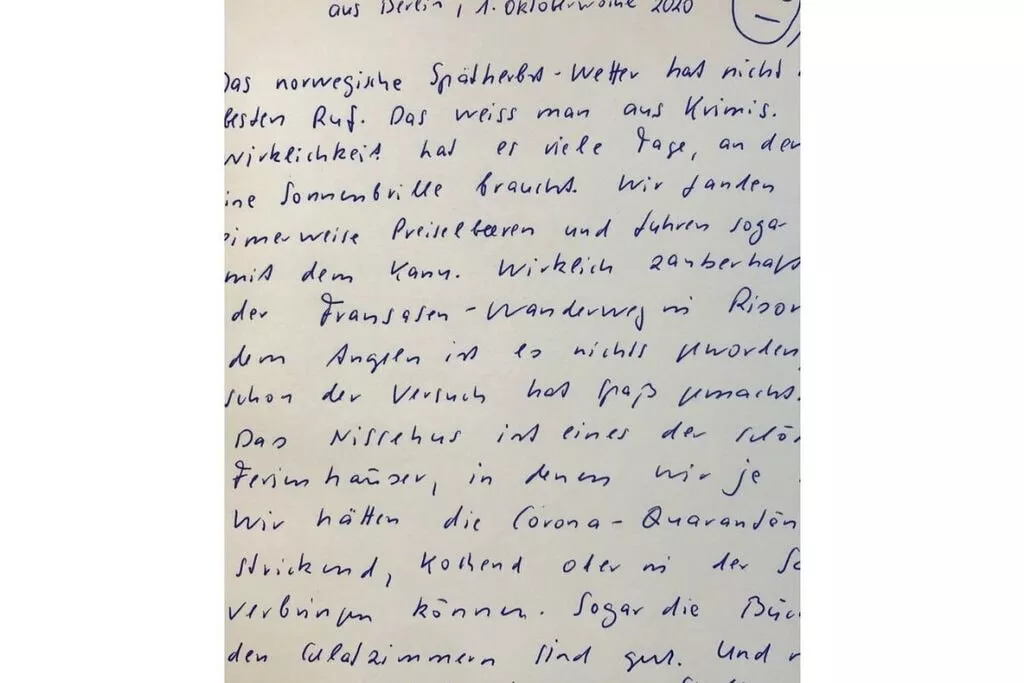 aus Berlin, 1. Oktoberwoche 2020
Das norwegische Spätherbst-Wetter hat nicht
besten Ruf. Das weiss man aus Krimis.
Wirklichkeit hat es viele Tage, an den
ine Sonnenbrille braucht. Wir fanden
eimerweise Preiselbeeren und fuhren soga
mit dem Kanu. Wirklich zauberhaft
der Fransasen-Wanderweg in Risor
dem Angeln ist es nichts geworden,
schon der Versuch hat Spaß gemacht.
Das Nissehus ist eines der schö
Ferienhäuser, in denen wir je
Wir hätten die Corona-Quarantän
strickend, kochend oder in der Sa
verbringen können. Sogar die Büc
den Schlafzimmern sind gut. Und